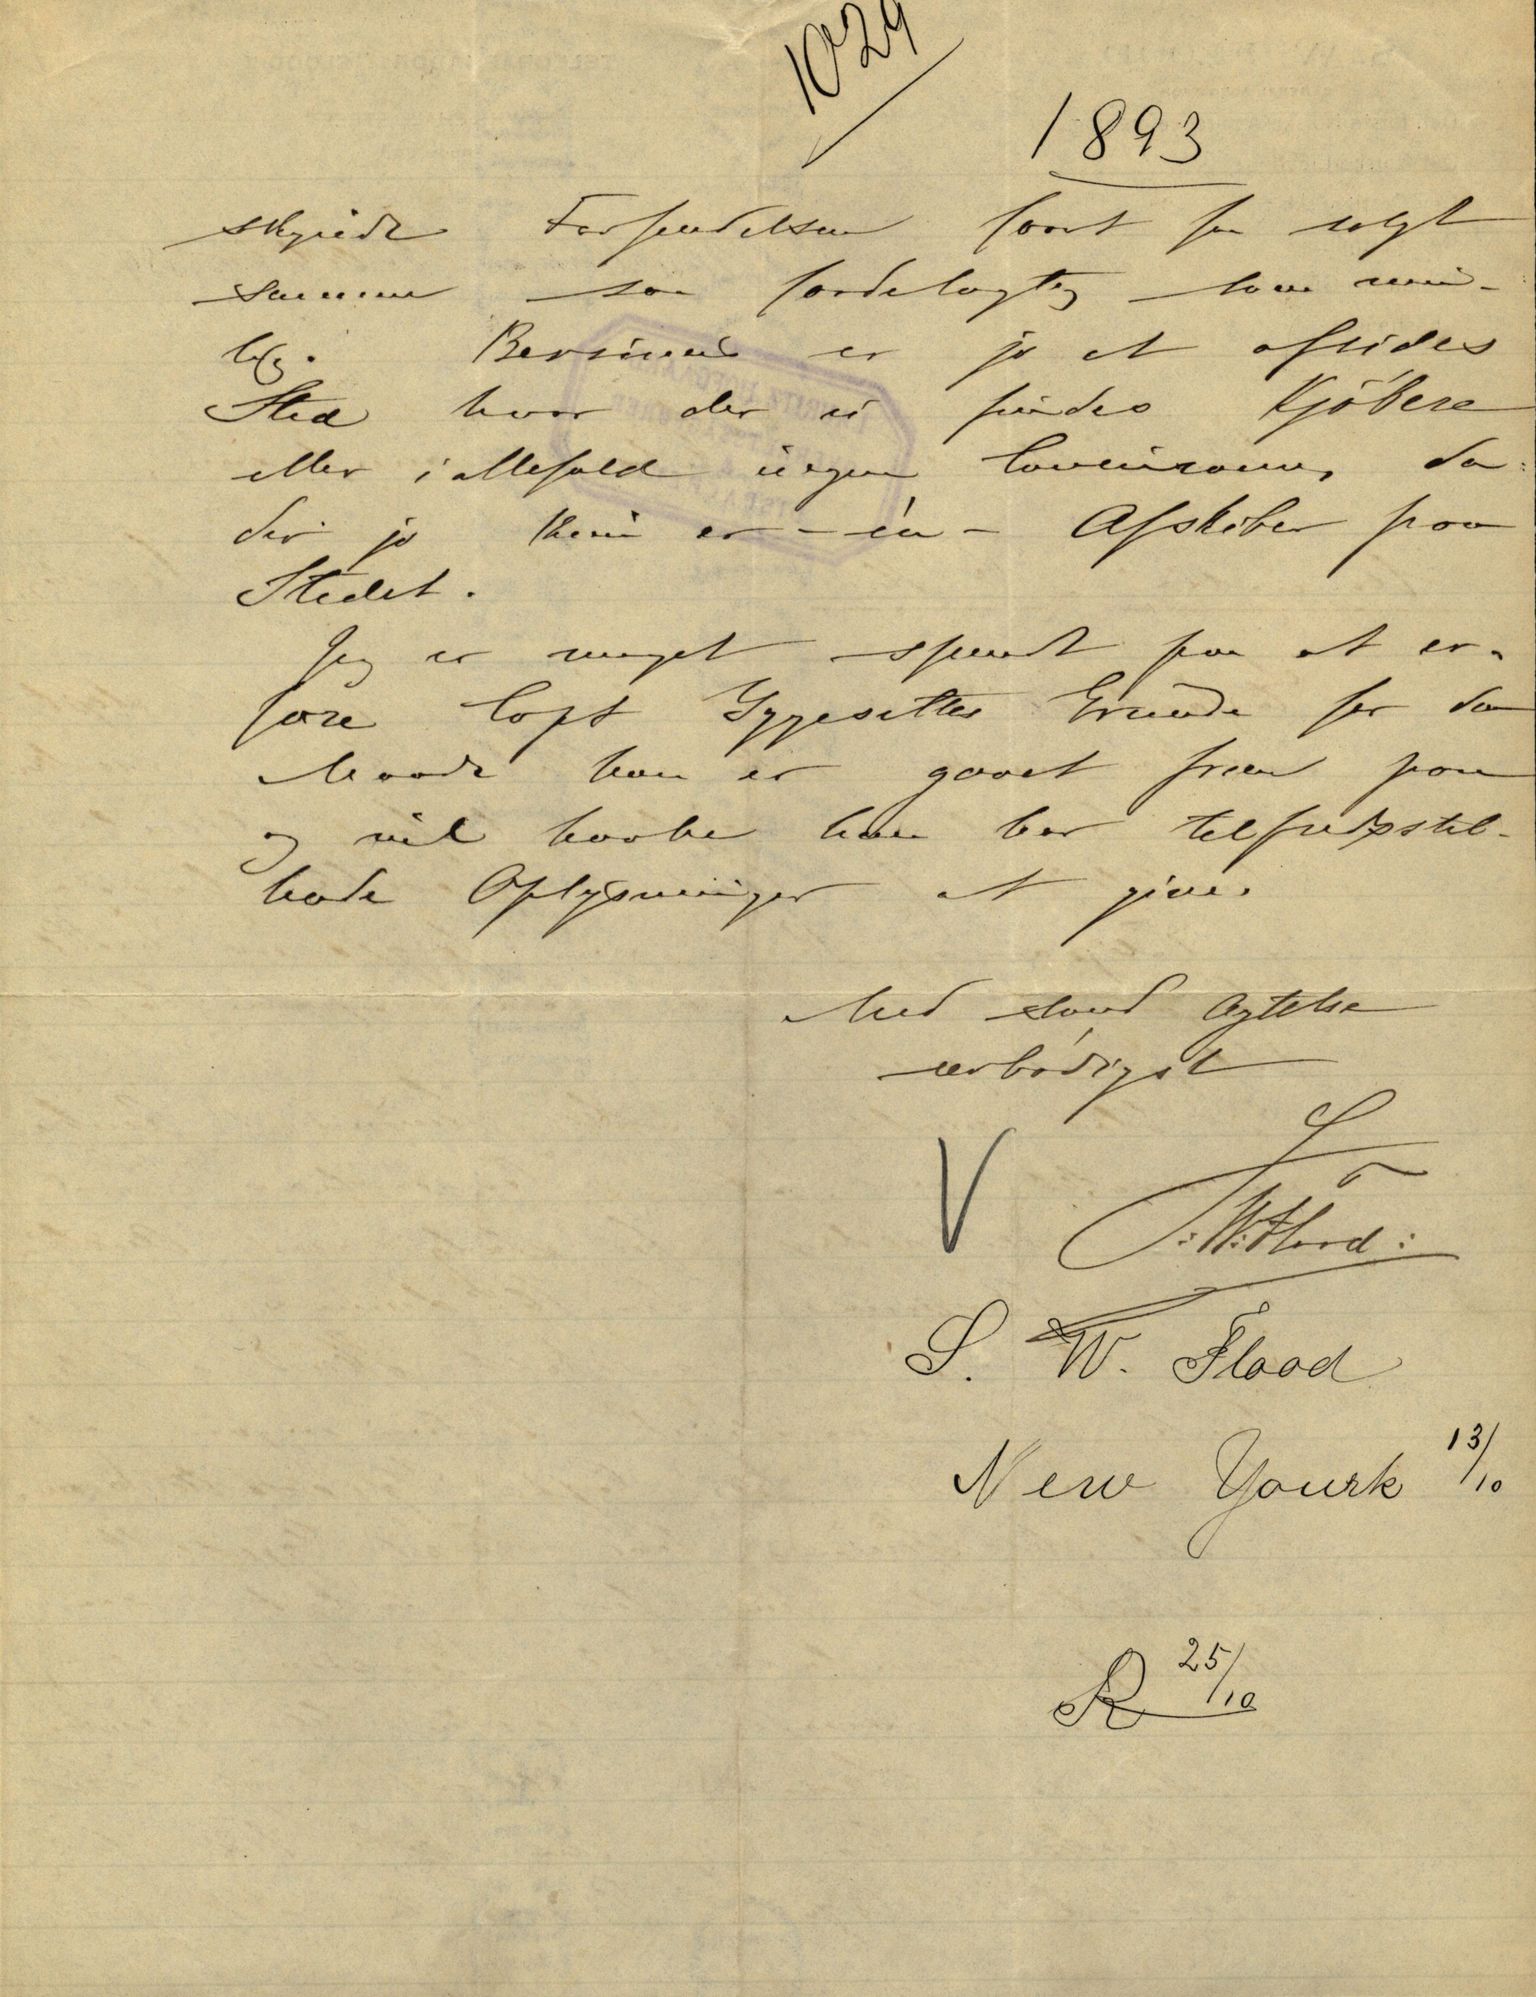 1029
1893
skyndte Forsendelsen samt faa solgt
samme saa fordelagtig som mu-
lig. Bersimis er jo et afsides
Sted hvor der ei findes Kjöbere
eller iallefald ingen Concurrence, da
der jo kun er - én - Afskiber paa
Stedet.
Jeg er meget spændt paa at er-
fare Capt Yggesettes Grunde for den
Maade han er gaaet frem paa
og vil haabe han har tilfredsstil-
lende Oplysninger at give.
Med sand Agtelse
ærbødigst
S. W. Flood:
S. W. Flood
New Yourk 13/10
R 25/10